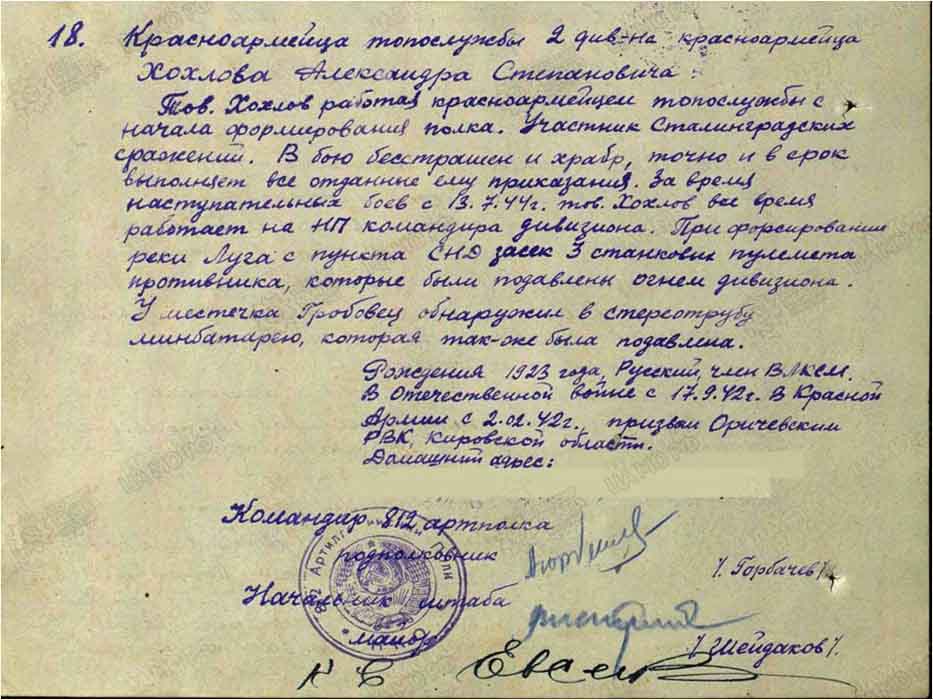 18. Красноармейца топослужбы 2 див-на красноармейца
Хохлова Александра Степановича.
Тов. Хохлов работая красноармейцем топослужбы с
начала формирования полка. Участник Сталинградских
сражений. В бою бесстрашен и храбр, точно и в срок
выполняет все отданные ему приказания. За время
наступательных боев с 13.7.44г. тов. Хохлов все время
работает на НП командира дивизиона. При форсировании
реки Луга с пункта СНД засек 3 становых пулемета
противника, которые были подавлены огнем дивизиона.
У местечка Гробовец обнаружил в стереотрубу
минбатарею, которая так-же была подавлена.
Рождения 1923 года, Русский, член ВЛКСМ.
В Отечественной войне с 17.9.42г. В Красной
Армии с 2.02.42г., призван Оричевским
РВК, Кировской области.
Домашний адрес:
Командир 812 артполка
подполковник
/. Горбачев/
Начальник штаба
"майор"
/. Шейдаков/.